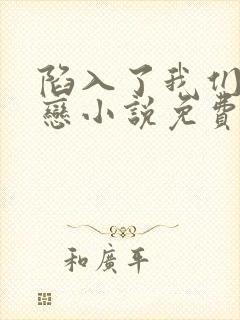 陷入了我们
戀小説免費
和廣平